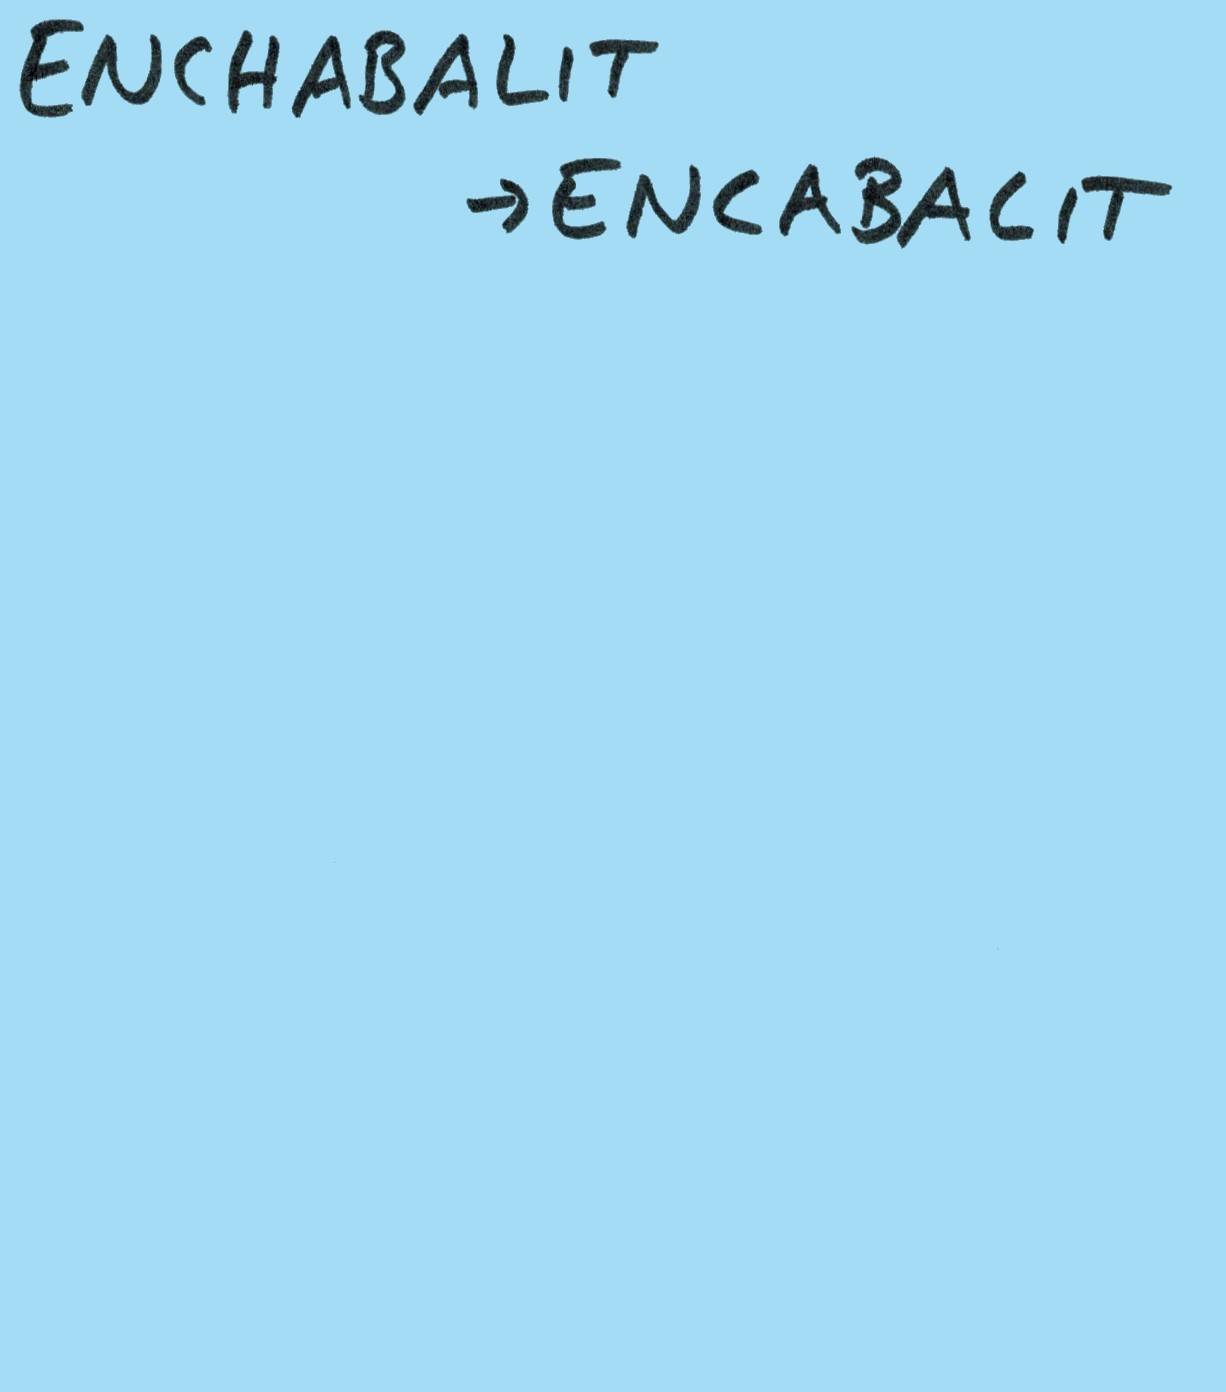 ENCHABALIT
→ENCABACIT